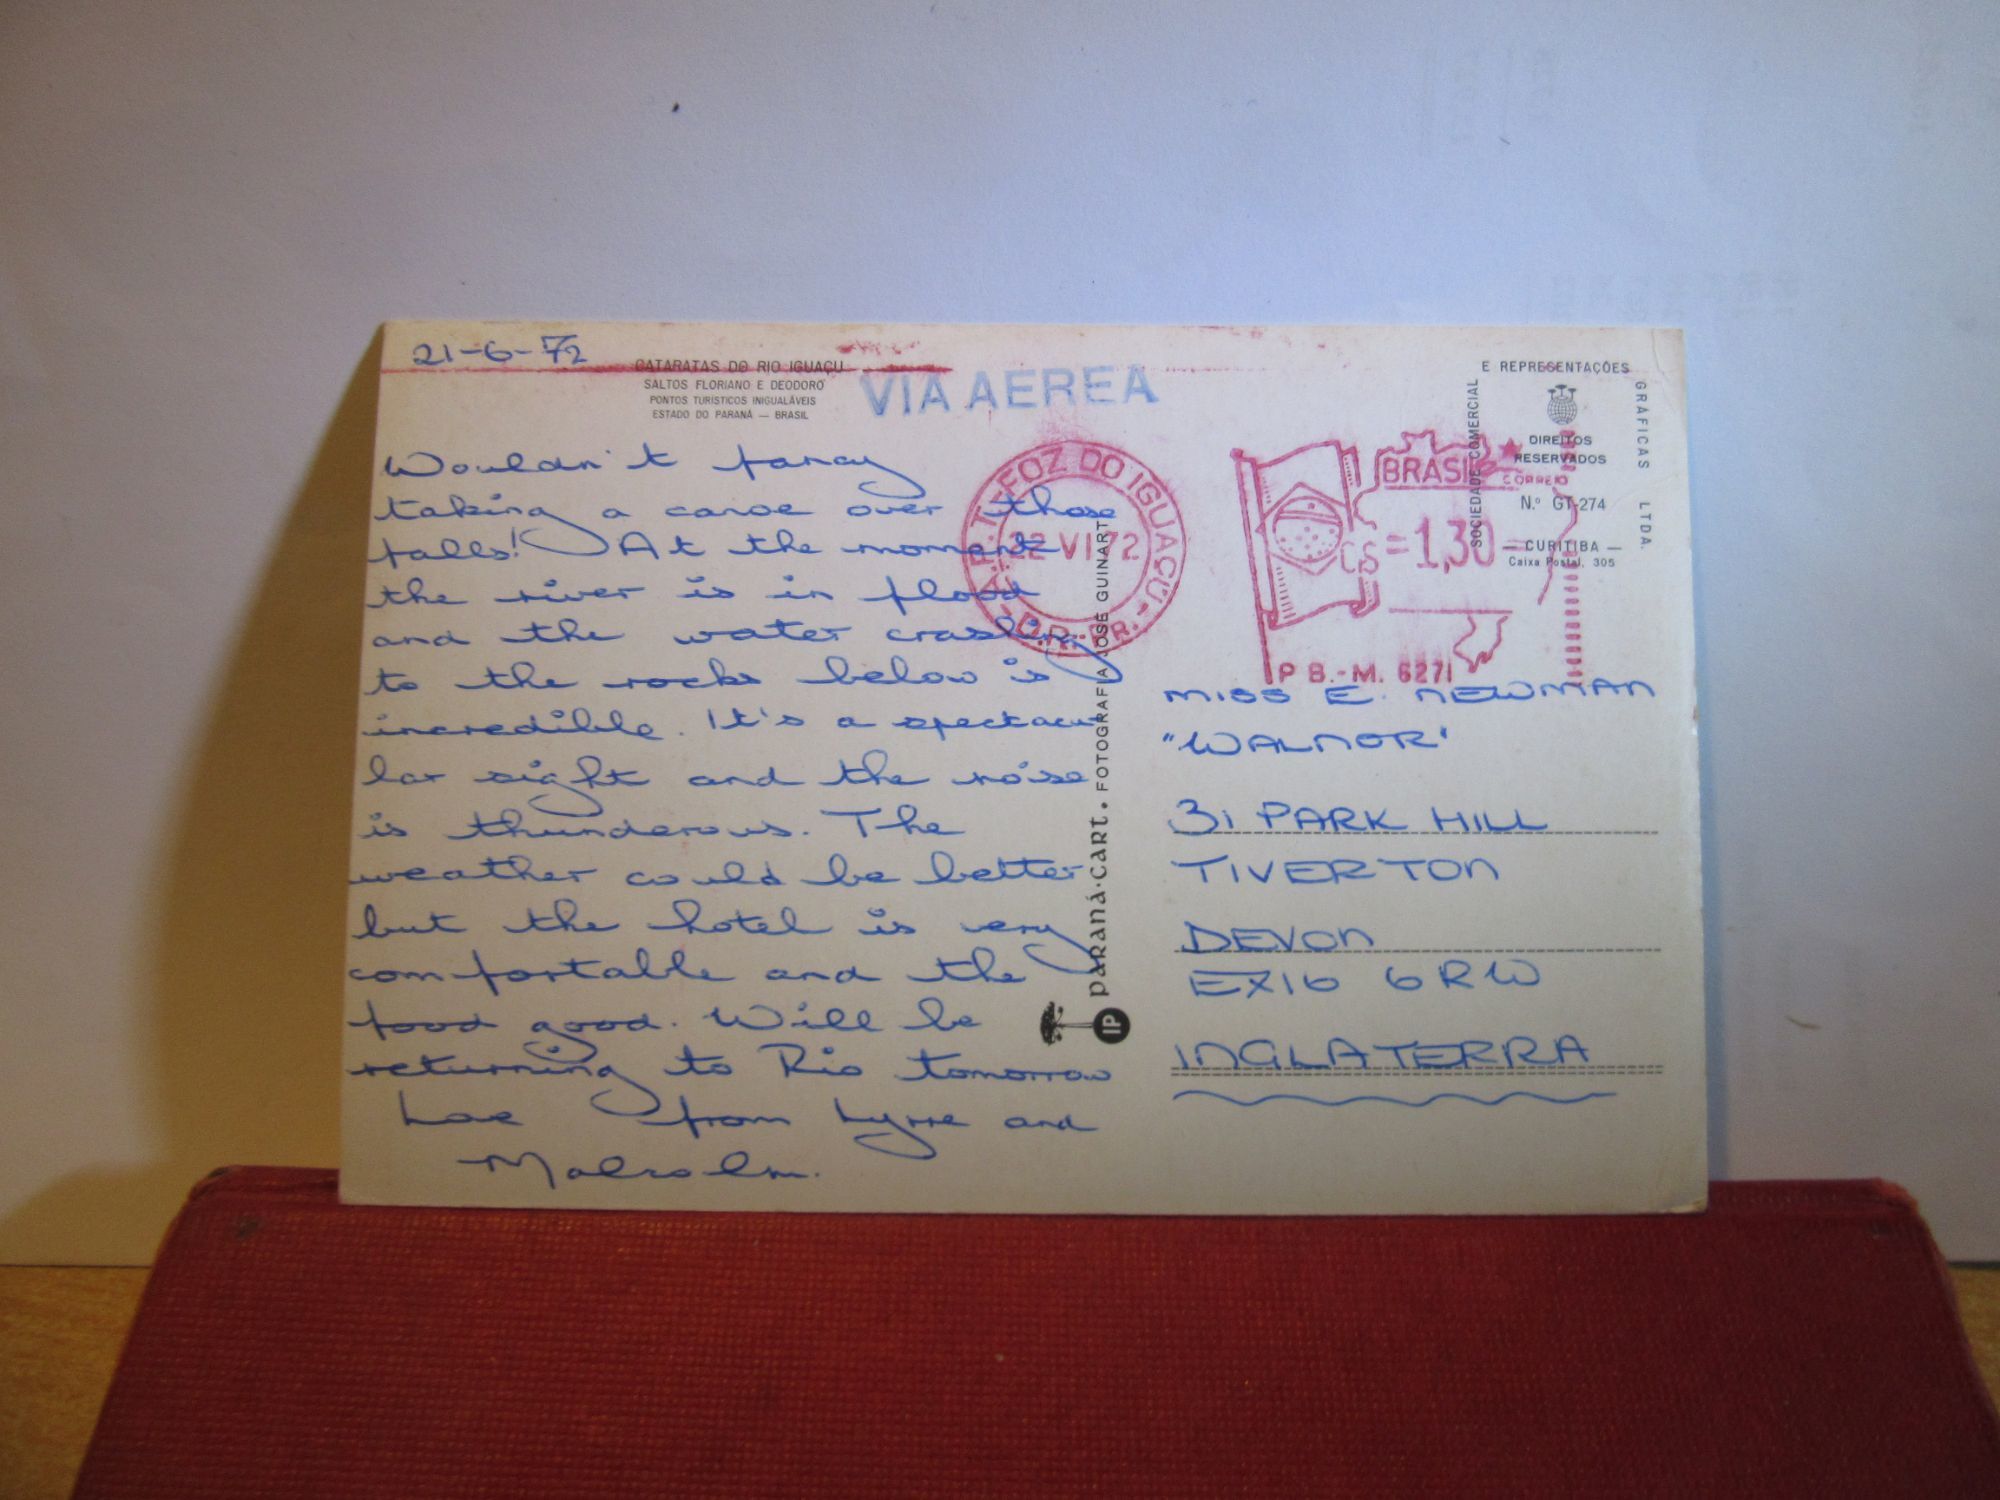 21-6-72
CATARATAS DO RIO IGUAÇU
SALTOS FLORIANO E DEODORO
PONTOS TURISTICOS INIGUALÁVEIS
ESTADO DO PARANÁ — BRASIL
VIA AEREA
Wouldn't fancy
taking a canoe over those
falls! At the moment
the river is in flood
and the water crashing
to the rocks below is
incredible. It's a spectacu-
lar sight and the noise
is thunderous. The
weather could be better
but the hotel is very
comfortable and the
food good. Will be
returning to Rio tomorrow
Love from Lynne and
Malcolm.
FOZ DO IGUAÇU
22 VI 72
D.R.-PR.
PARANÁ-CART. FOTOGRAFIA JOSÉ GUINART
IP
BRASIL
CORREIO
C$=1,30
P B.-M. 6271
SOCIEDADE COMERCIAL
E REPRESENTAÇÕES
GRAFICAS LTDA.
DIREITOS
RESERVADOS
N.º GT-274
— CURITIBA —
Caixa Postal, 305
MISS E. NEWMAN
"WALNOR"
31 PARK HILL
TIVERTON
DEVON
EX16 6RW
INGLATERRA